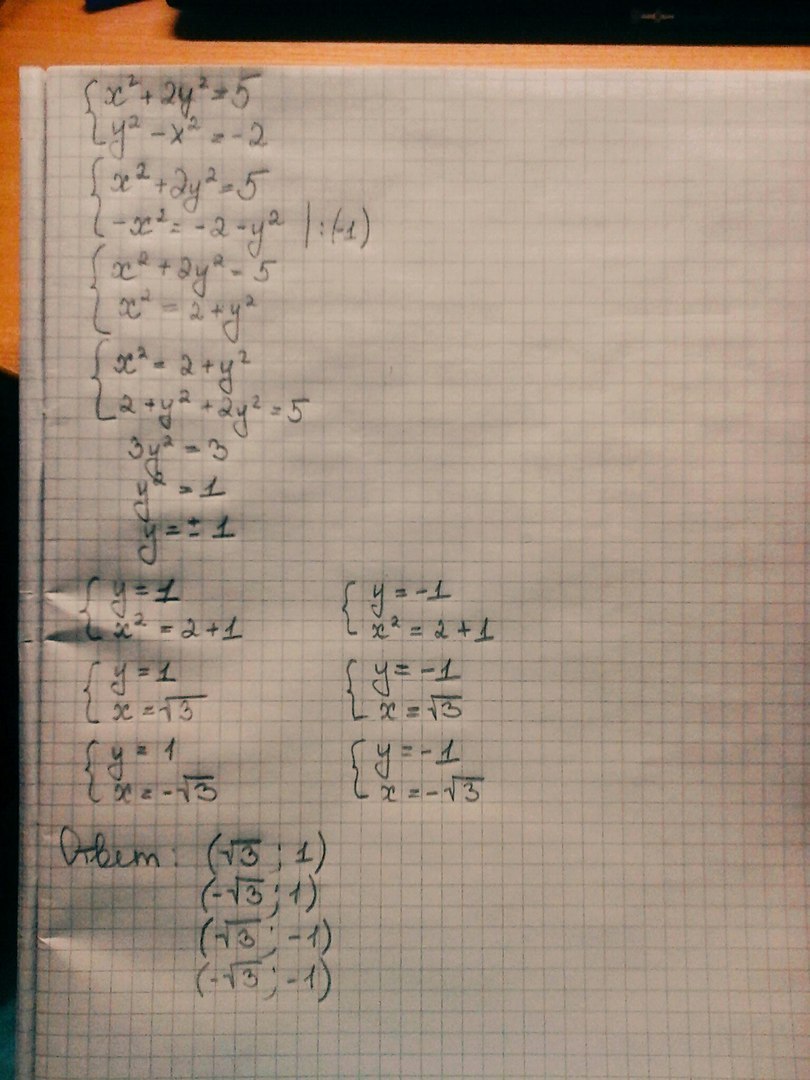 { x² + 2y² = 5
y² - x² = -2
{ x² + 2y² = 5
-x² = -2 - y² | : (-1)
{ x² + 2y² = 5
x² = 2 + y²
{ x² = 2 + y²
2 + y² + 2y² = 5
3y² = 3
y² = 1
y = ± 1
{ y = 1 { y = -1
x² = 2 + 1 x² = 2 + 1
{ y = 1 { y = -1
x = √3 x = √3
{ y = 1 { y = -1
x = -√3 x = -√3
Ответ: (√3 ; 1)
(-√3 ; 1)
(√3 ; -1)
(-√3 ; -1)